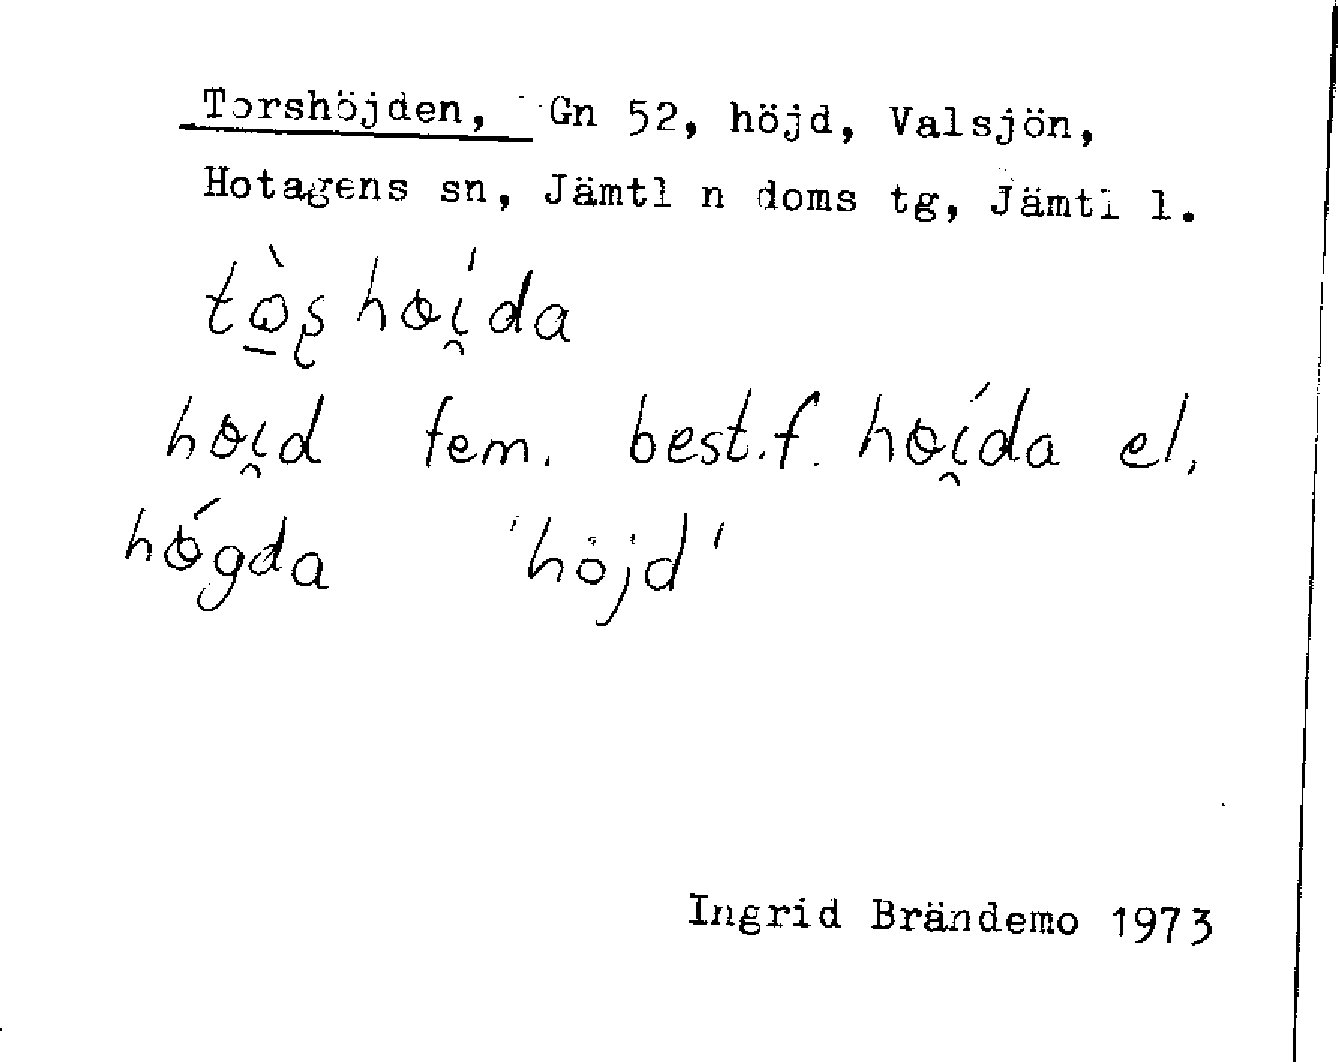 Torshöjden, Gn 52, höjd, Valsjön,
Hotagens sn, Jämtl n doms tg, Jämtl l.
tɷ̠̀ʂhɵí̯da
hɵi̯d fem. best.f. hɵí̯da el.
hɵ́gda 'höjd'
Ingrid Brändemo 1973